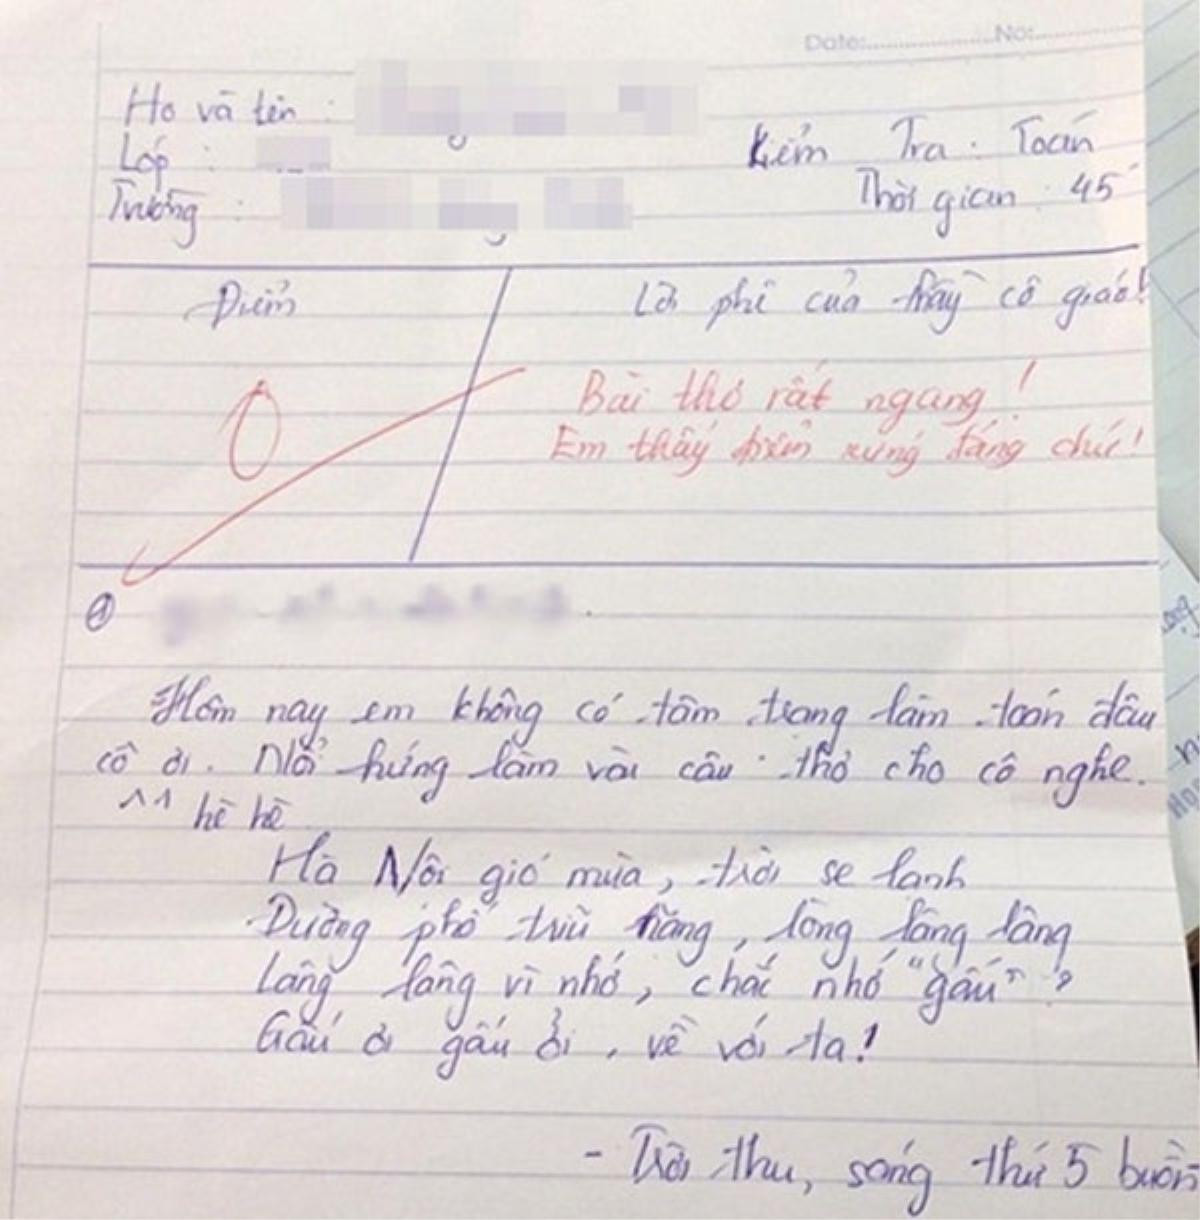 Date: No:
Họ và tên :
Lớp :
Trường :
Kiểm Tra : Toán
Thời gian : 45'
Điểm
Lời phê của thầy cô giáo!
0
Bài thơ rất ngang !
Em thấy điểm xứng đáng chứ!
①
Hôm nay em không có tâm trạng làm toán đâu
cô ơi. Nổi hứng làm vài câu thơ cho cô nghe.
^^ hề hề
Hà Nội gió mùa, trời se lạnh
Đường phố trĩu nặng, lòng lâng lâng
Lâng lâng vì nhớ, chắc nhớ "gấu" ?
Gấu ơi gấu ởi, về với ta!
- Trời thu, sáng thứ 5 buồn